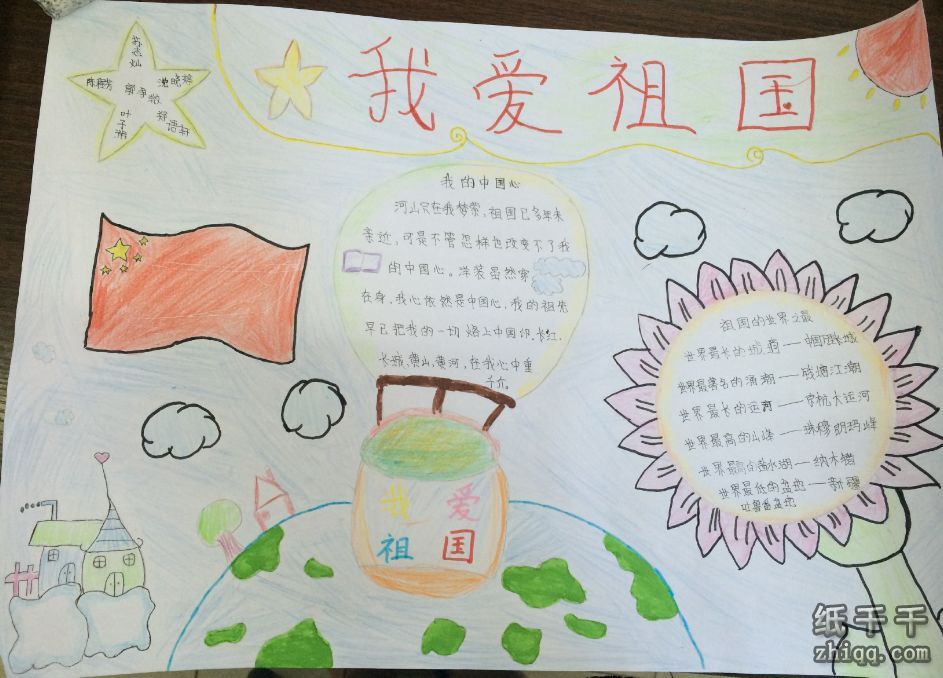 我爱祖国
我的中国心
河山只在我梦萦，祖国已多年未
亲近，可是不管怎样也改变不了我
的中国心。洋装虽然穿
在身，我心依然是中国心，我的祖先
早已把我的一切 烙上中国印．长江．
长城，黄山，黄河，在我心中重
千斤。
祖国的世界之最
世界最长的城墙——中国长城
世界最著名的涌潮——钱塘江潮
世界最长的运河——京杭大运河
世界最高的山峰——珠穆朗玛峰
世界最高的咸水湖——纳木错
世界最低的盆地——新疆
吐鲁番盆地
我爱
祖国
纸千千
zhiqq.com